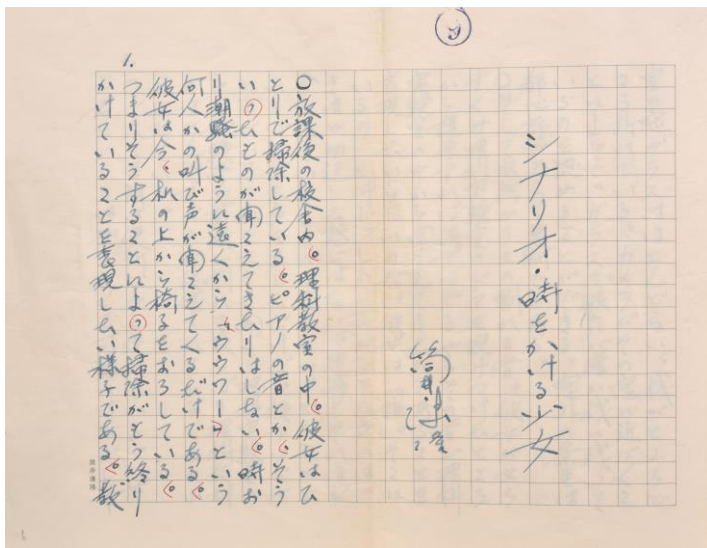 9
シナリオ・時をかける少女
筒井康隆
1.
○放課後の校舎内。理科教室の中。彼女はひ
とりで掃除している。ピアノの音とか、そう
いったものが聞こえてきたりはしない。時お
り潮騒のように遠くから「ウウワー」という
何人かの叫び声が聞こえてくるだけである。
彼女は今、机の上から椅子をおろしている。
つまりそうすることによって掃除がもう終り
かけていることを表現したい様子である。散
筒井康隆